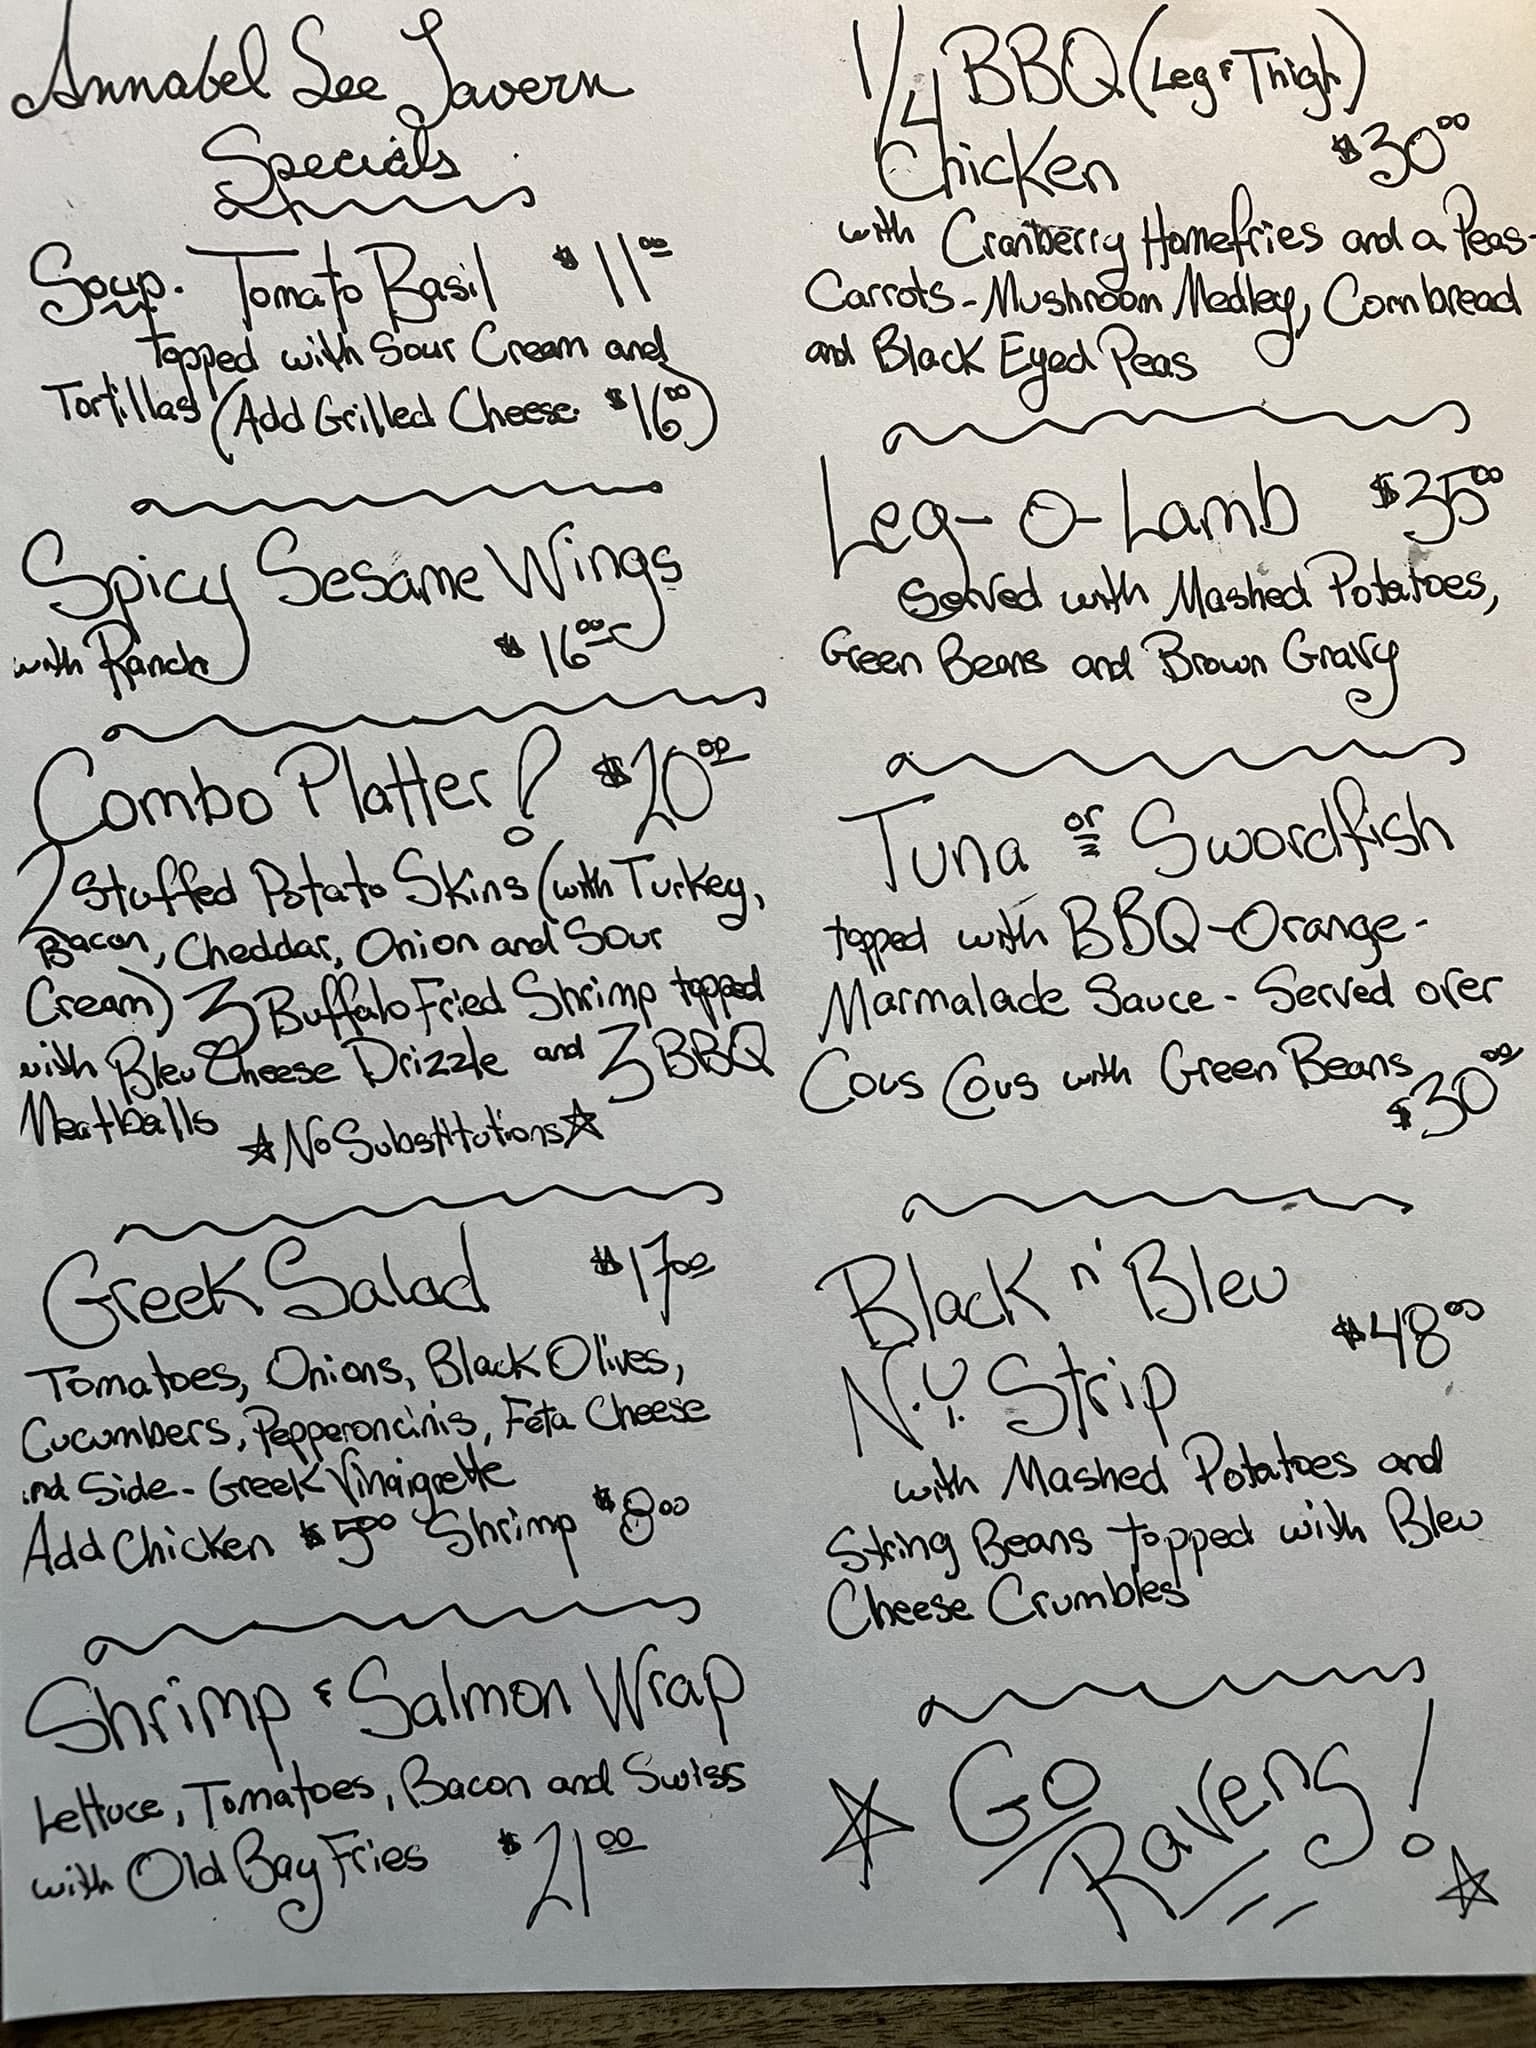 Annabel Lee Tavern
Specials
Soup. Tomato Basil $11.00
topped with Sour Cream and
Tortillas (Add Grilled Cheese. $16.00)
Spicy Sesame Wings
with Ranch $16.00
Combo Platter! $20.00
2 Stuffed Potato Skins (with Turkey,
Bacon, Cheddar, Onion and Sour
Cream) 3 Buffalo Fried Shrimp topped
with Bleu Cheese Drizzle and 3 BBQ
Meatballs ☆No Substitutions☆
Greek Salad $17.00
Tomatoes, Onions, Black Olives,
Cucumbers, Pepperoncinis, Feta Cheese
and Side - Greek Vinaigrette
Add Chicken $5.00 Shrimp $8.00
Shrimp & Salmon Wrap
Lettuce, Tomatoes, Bacon and Swiss
with Old Bay Fries $21.00
1/4 BBQ (Leg & Thigh)
Chicken $30.00
with Cranberry Homefries and a Peas-
Carrots-Mushroom Medley, Cornbread
and Black Eyed Peas
Leg-O-Lamb $35.00
Served with Mashed Potatoes,
Green Beans and Brown Gravy
Tuna or Swordfish
topped with BBQ-Orange-
Marmalade Sauce - Served over
Cous Cous with Green Beans
$30.00
Black n' Bleu
$48.00
N.Y. Strip
with Mashed Potatoes and
String Beans topped with Bleu
Cheese Crumbles
☆ Go
Ravens! ☆